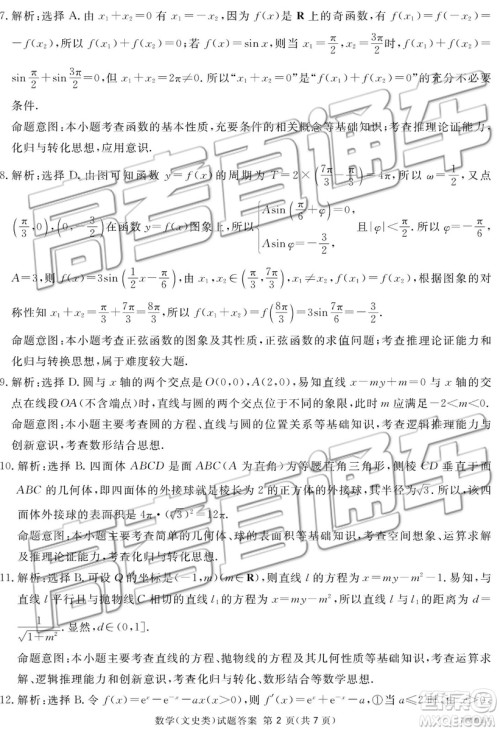 7.解析:选择 A.由 x₁+x₂=0 有 x₁=-x₂,因为 f(x) 是 R 上的奇函数,有 f(x₁)=f(-x₂)=
-f(x₂),所以 f(x₁)+f(x₂)=0;若 f(x)=sin x,则当 x₁=π/2,x₂=3π/2时,f(x₁)+f(x₂)=
sin π/2+sin 3π/2=0,但 x₁+x₂=2π≠0.所以“x₁+x₂=0”是“f(x₁)+f(x₂)=0”的充分不必要
条件.
命题意图:本小题考查函数的基本性质,充要条件的概念等基础知识;考查推理论证能力,
化归与转化思想,应用意识.
8.解析:选择 D.由图可知函数 y=f(x) 的周期为 T=2×(7π/3-π/3)=4π,所以 ω=1/2,又点
(π/3,0),(0,-3/2)在函数 f(x)图象上,所以{Asin(π/6+φ)=0, Asin φ=-3/2, 且|φ|<π/2.所以 φ=-π/6,
A=3,则 f(x)=3sin(1/2x-π/6),由 x₁,x₂∈(π/3,7π/3),x₁≠x₂,f(x₁)=f(x₂),根据图象的对
称性知 x₁+x₂=π/3+7π/3=8π/3,所以 f(x₁+x₂)=f(8π/3)=3sin 7π/6=-3/2.
命题意图:本小题考查正弦函数的图象及其性质,正弦函数的求值问题;考查推理论证能力,
化归与转换思想,属于难度较大题.
9.解析:选择 D.圆与 x 轴的两个交点是 O(0,0),A(2,0),易知直线 x-my+m=0 与 x 轴的交
点在线段 OA(不含端点)时,直线与圆一定相交,所以 0<-m<2,即-2<m<0.
命题意图:本小题主要考查圆的方程、直线与圆的位置关系等基础知识,考查逻辑推理能力与
创新意识,考查数形结合思想.
10.解析:选择 B.四面体 ABCD 是底面为 ABC(A 为直角)为等腰直角三角形,侧棱 CD 垂直于面
ABC 的几何体,即四面体的外接球就是棱长为 2 的正方体的外接球,半径为√3.所以,该四
面体外接球的表面积是 4π·(√3)²=12π.
命题意图:本小题主要考查简单几何体、球的表面积等基础知识,考查空间想象、运算求解
及推理论证能力,考查化归与转化思想.
11.解析:选择 B.可设 Q 的坐标是(-1,m)(m∈R),则直线 l 的方程为 x-my+m²=0,易知,与
直线 l 平行且与抛物线 C 相切的直线 l₁ 的方程为 x-my+m²=0,所以两直线的距离为 d=
1/√(1+m²).显然,d∈(0,1].
命题意图:本小题主要考查直线的方程、抛物线的方程及其几何意义等基础知识,考查逻
辑推理与运算求解能力,考查化归与转化及数形结合思想与创新意识.
12.解析:选择 B.令 f(x)=eˣ-e⁻ˣ-ax(x>0),则 f'(x)=eˣ+e⁻ˣ-a,①当 a≤2 时,由
数学(文史类)试题答案 第 2 页(共 7 页)
高考直通车
高考直通车